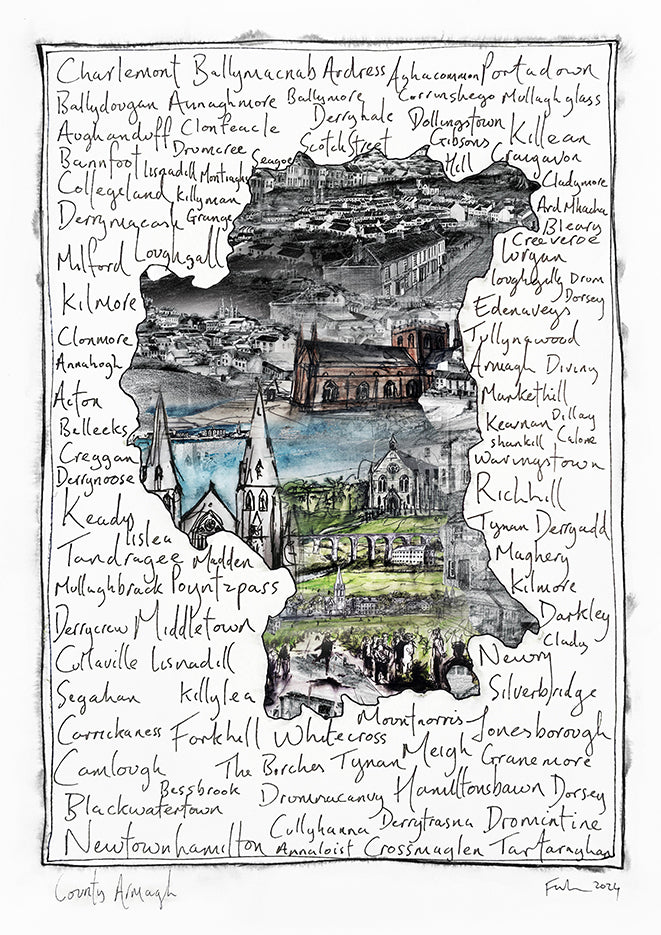 Charlemont Ballymacnab Ardress Aghacommon Portadown
Ballydougan Annaghmore Ballymore Corrunshego Mullaghglass
Aughanduff Clonfeacle Derryhale Dollingstown Killean
Bannfoot Drumcree Scotch Street Gibsons Hill Craigavon
Lisnadill Montiaghs Seagoe Cladymore
Collegeland Killyman Ard Mhacha
Derrymacash Grange Bleary
Creeveroe
Milford Loughgall Lurgan
Loughgilly Drum
Dorsey
Kilmore Edenaveys
Clonmore Tullynawood
Annahogh Armagh Diviny
Acton Markethill
Belleeks Kearnan Dillay
Creggan Shankill Calone
Derrynoose Waringstown
Keady Richhill
Lislea Tynan Derryadd
Tandragee Madden Maghery
Mullaghbrack Poyntzpass Kilmore
Derrycrew Middletown Darkley
Clady
Cullaville Lisnadill Newry
Segahan Killylea Silverbridge
Carrickaness Forkhill Whitecross Mountnorris Jonesborough
Camlough The Birches Tynan Meigh Granemore
Bessbrook Drumnacanvy Hamiltonsbawn Dorsey
Blackwatertown
Cullyhanna Derrytrasna Dromintine
Newtownhamilton Annaloist Crossmaglen Tartaraghan
County Armagh
2024